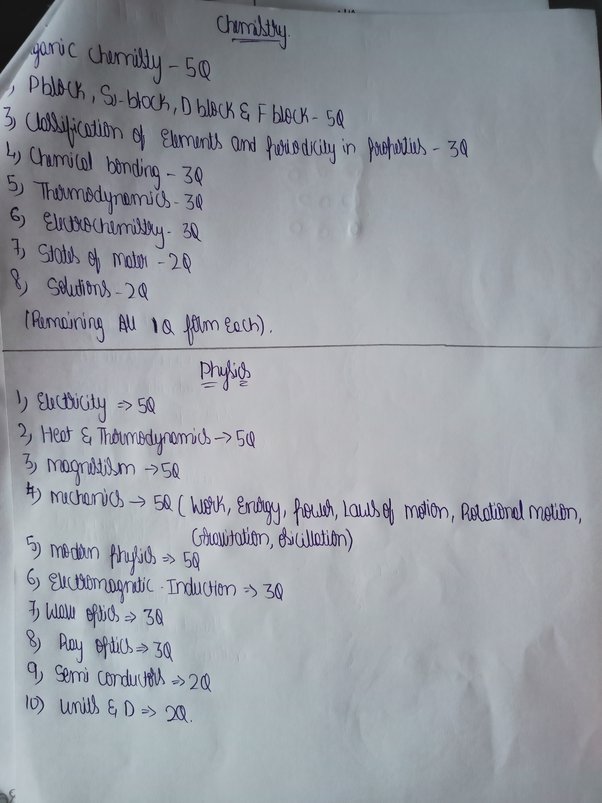 Chemistry.
ganic chemistry - 5Q
, P block, S-block, D block & F block - 5Q
3, Classification of Elements and periodicity in properties - 3Q
4, Chemical bonding - 3Q
5, Thermodynamics - 3Q
6, Electrochemistry - 3Q
7, States of mater - 2Q
8, Solutions - 2Q
(Remaining All 1Q form Each).
Physics
1, Electricity => 5Q
2, Heat & Thermodynamics -> 5Q
3, magnetism -> 5Q
4, mechanics -> 5Q (Work, Energy, power, Laws of motion, Rotational motion,
Gravitation, oscillation)
5) modern physics => 5Q
6, Electromagnetic Induction => 3Q
7, Wave optics => 3Q
8) Ray optics => 3Q
9, Semi conductors => 2Q
10) units & D => 2Q.